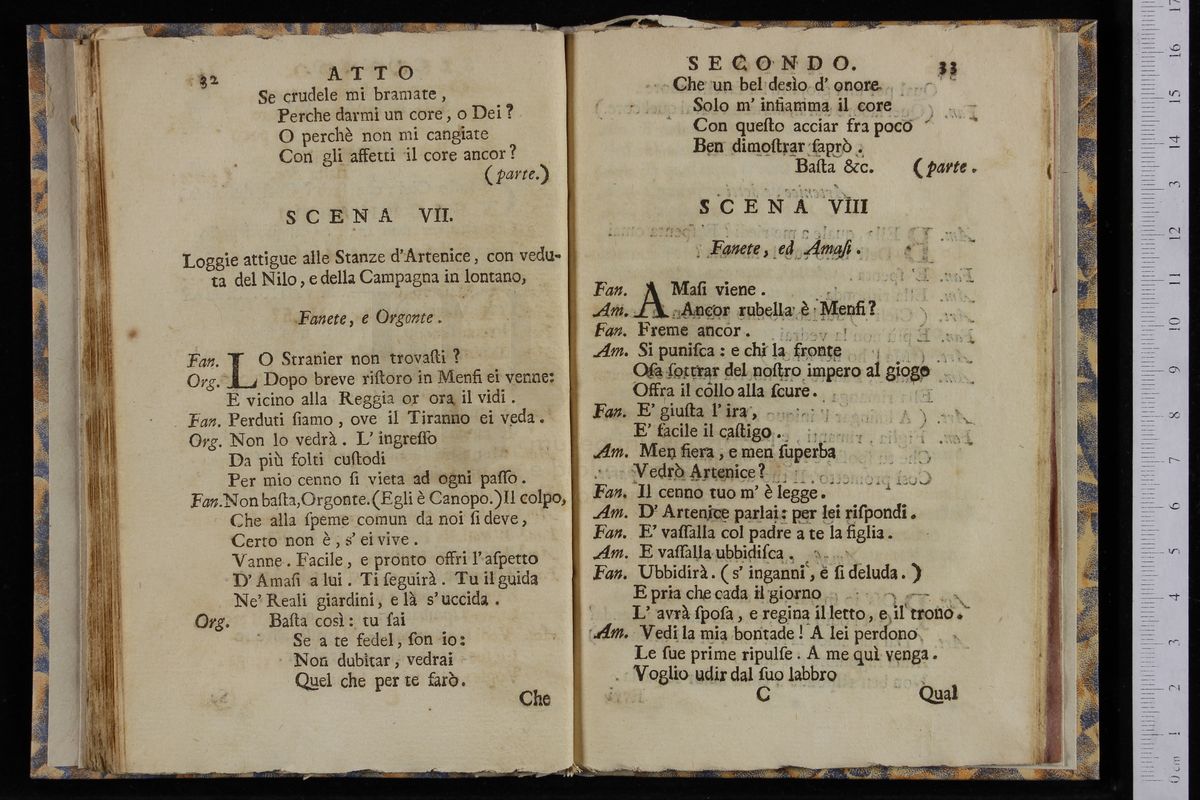 32
ATTO
Se crudele mi bramate,
Perche darmi un core, o Dei?
O perchè non mi cangiate
Con gli affetti il core ancor?
(parte.)
SCENA VII.
Loggie attigue alle Stanze d'Artenice, con vedu-
ta del Nilo, e della Campagna in lontano,
Fanete, e Orgonte.
Fan. LO Stranier non trovaſti?
Org. Dopo breve riſtoro in Menfi ei venne:
E vicino alla Reggia or ora il vidi.
Fan. Perduti ſiamo, ove il Tiranno ei veda.
Org. Non lo vedrà. L' ingreſſo
Da più folti cuſtodi
Per mio cenno ſi vieta ad ogni paſſo.
Fan. Non baſta, Orgonte. (Egli è Canopo.) Il colpo,
Che alla ſpeme comun da noi ſi deve,
Certo non è, s' ei vive.
Vanne. Facile, e pronto offri l'aſpetto
D' Amaſi a lui. Ti ſeguirà. Tu il guida
Ne' Reali giardini, e là s'uccida.
Org. Baſta così: tu ſai
Se a te fedel, ſon io:
Non dubitar, vedrai
Quel che per te farò.
Che
SECONDO.
33
Che un bel desìo d' onore
Solo m' infiamma il core
Con queſto acciar fra poco
Ben dimoſtrar ſaprò.
Baſta &c. (parte.
SCENA VIII
Fanete, ed Amaſi.
Fan. AMaſi viene.
Am. Ancor rubella è Menfi?
Fan. Freme ancor.
Am. Si puniſca: e chi la fronte
Oſa ſottrar del noſtro impero al giogo
Offra il collo alla ſcure.
Fan. E' giuſta l' ira,
E' facile il caſtigo.
Am. Men fiera, e men ſuperba
Vedrò Artenice?
Fan. Il cenno tuo m' è legge.
Am. D' Artenice parlai: per lei riſpondi.
Fan. E' vaſſalla col padre a te la figlia.
Am. E vaſſalla ubbidiſca.
Fan. Ubbidirà. (s' inganni, e ſi deluda.)
E pria che cada il giorno
L' avrà ſpoſa, e regina il letto, e il trono.
Am. Vedi la mia bontade! A lei perdono
Le ſue prime ripulſe. A me quì venga.
Voglio udir dal ſuo labbro
C
Qual
0 cm 1 2 3 4 5 6 7 8 9 10 11 12 13 14 15 16 17